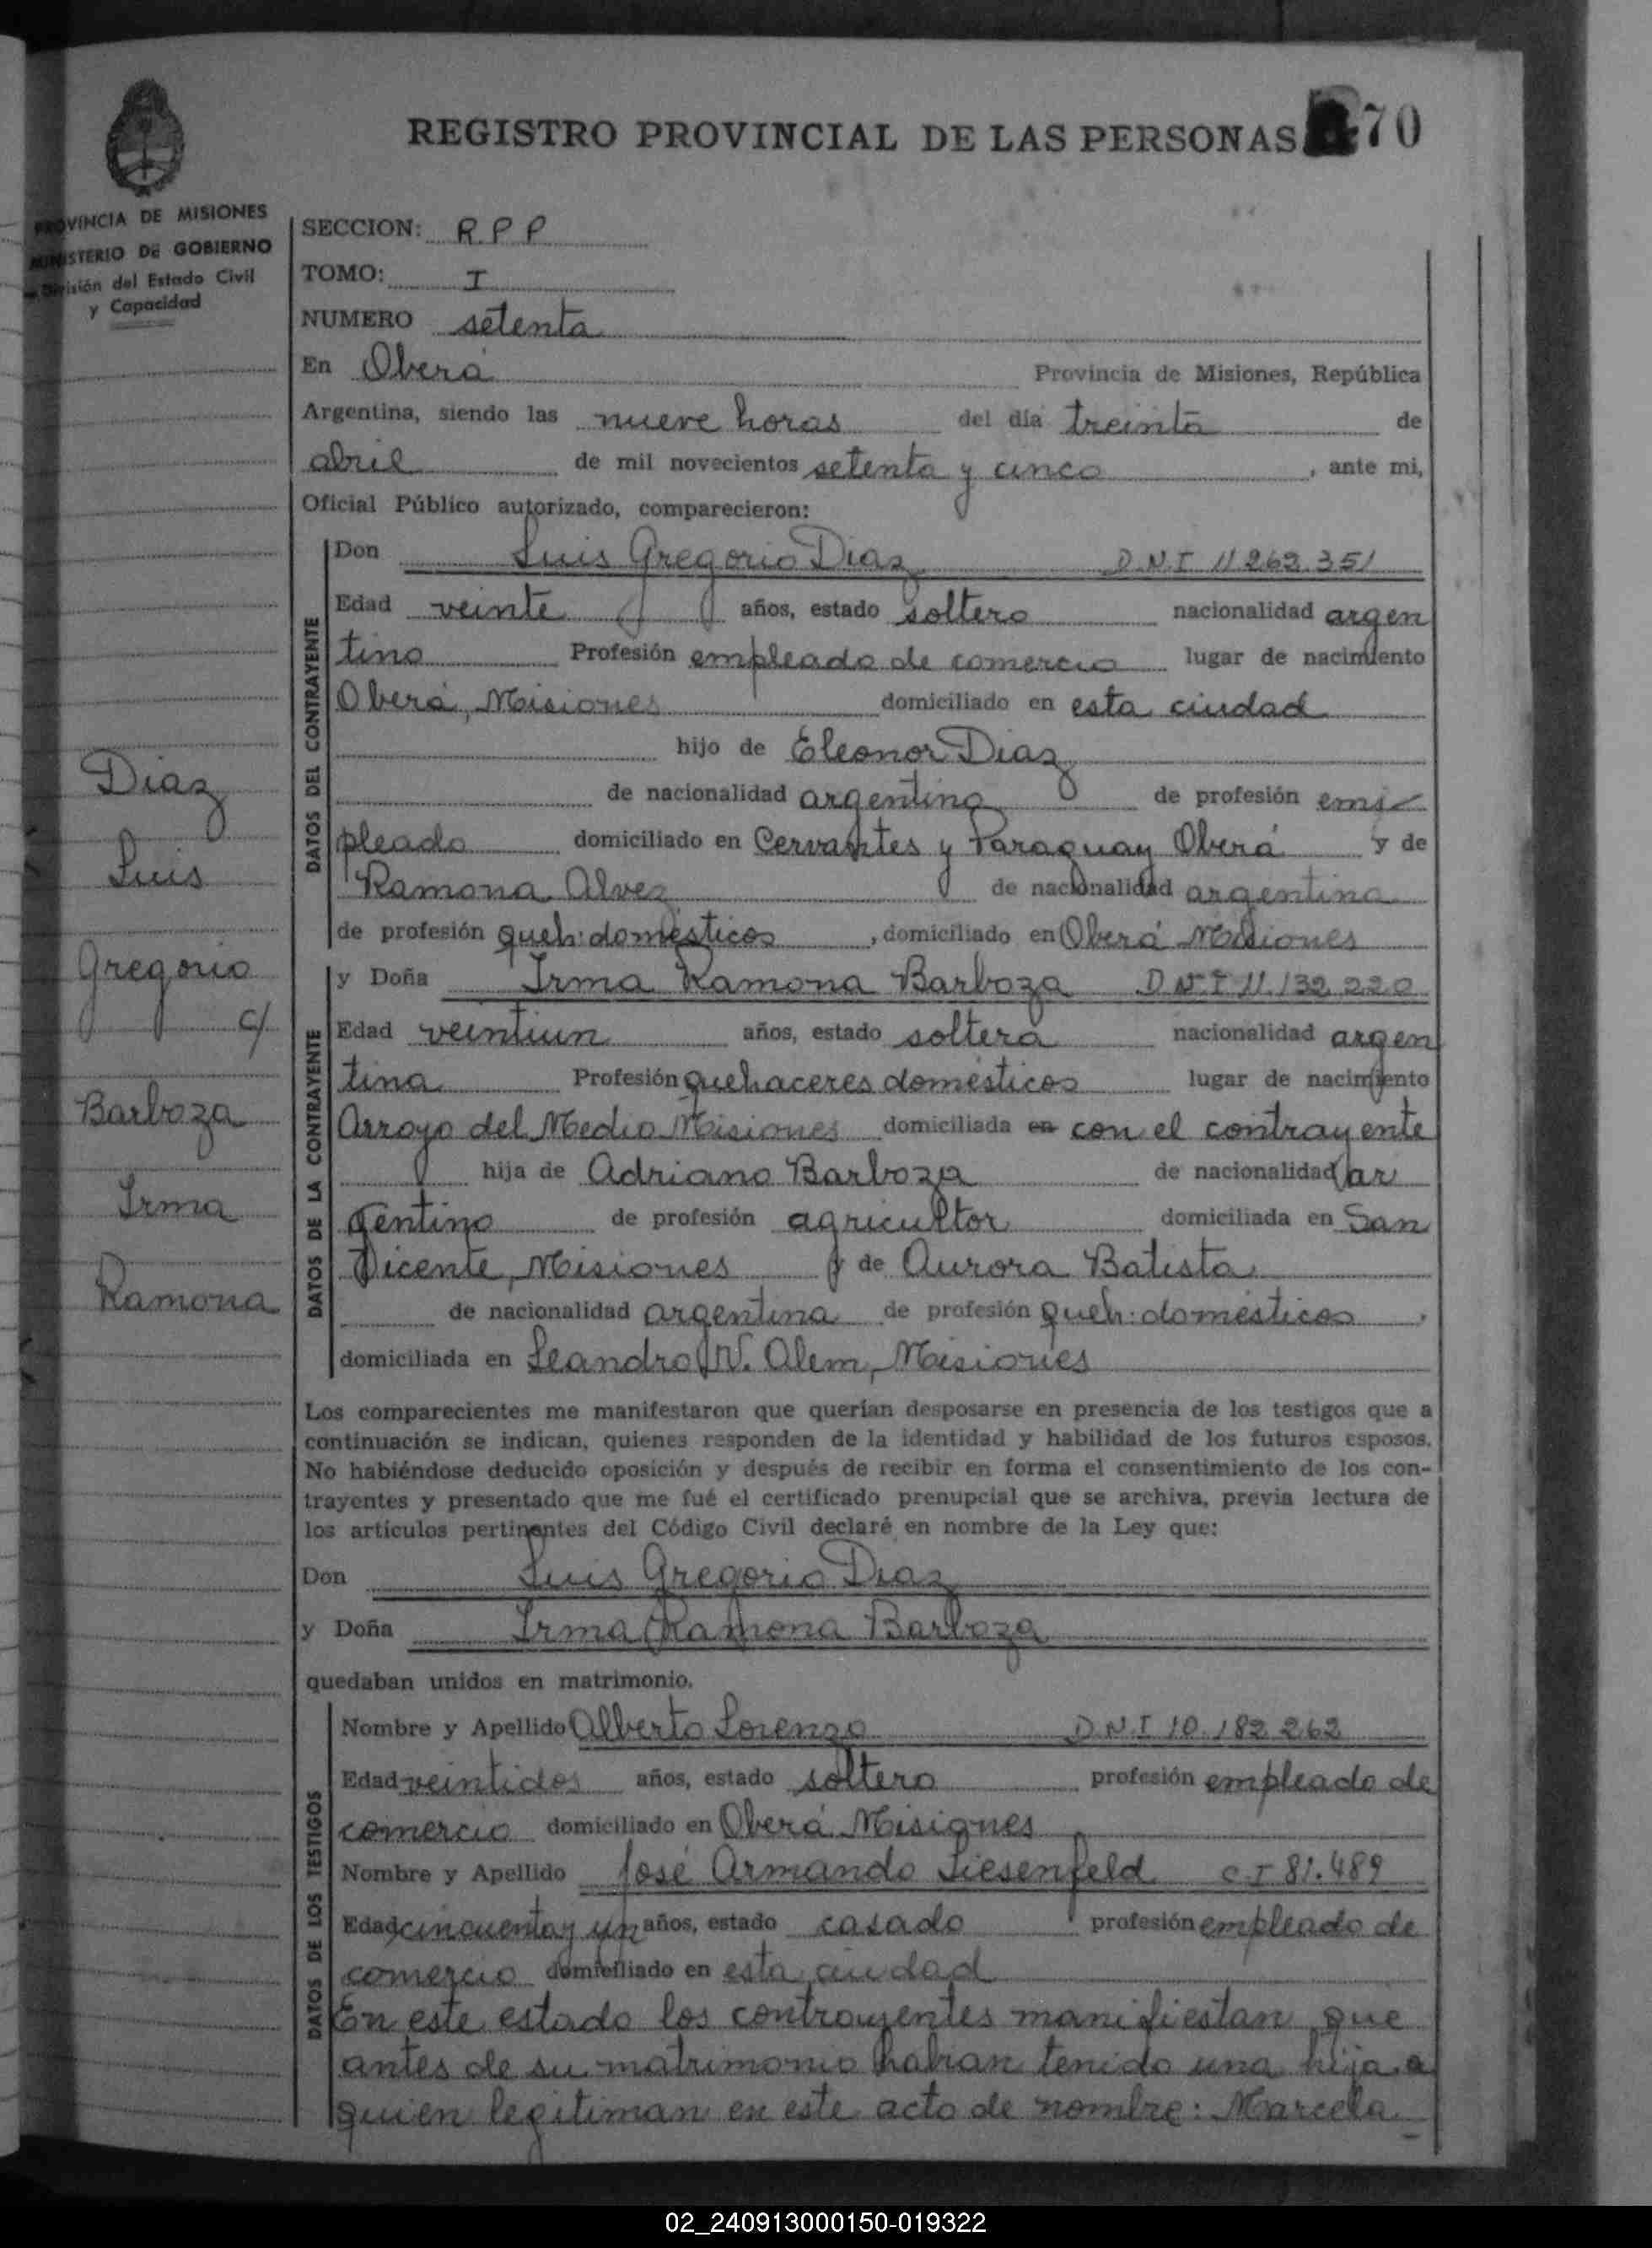 REGISTRO PROVINCIAL DE LAS PERSONAS 70
PROVINCIA DE MISIONES
MINISTERIO DE GOBIERNO
División del Estado Civil
y Capacidad
SECCION: R P P
TOMO: I
NUMERO setenta
En Oberá Provincia de Misiones, República
Argentina, siendo las nueve horas del día treinta de
abril de mil novecientos setenta y cinco, ante mi,
Oficial Público autorizado, comparecieron:
Diaz
Luis
Gregorio
c/
Barboza
Irma
Ramona
DATOS DEL CONTRAYENTE
Don Luis Gregorio Diaz D.N.I 11 262.351
Edad veinte años, estado soltero nacionalidad argen
tino Profesión empleado de comercio lugar de nacimiento
Oberá, Misiones domiciliado en esta ciudad
hijo de Eleonor Diaz
de nacionalidad argentino de profesión em
pleado domiciliado en Cervantes y Paraguay Oberá y de
Ramona Alvez de nacionalidad argentina
de profesión queh: domésticos, domiciliado en Oberá Misiones
DATOS DE LA CONTRAYENTE
y Doña Irma Ramona Barboza D.N.I 11.132.220
Edad veintiun años, estado soltera nacionalidad argen
tina Profesión quehaceres domésticos lugar de nacimiento
Arroyo del Medio Misiones domiciliada en con el contrayente
hija de Adriano Barboza de nacionalidad ar
gentino de profesión agricultor domiciliada en San
Vicente, Misiones y de Aurora Batista
de nacionalidad argentina de profesión queh: domésticos,
domiciliada en Leandro N. Alem, Misiones
Los comparecientes me manifestaron que querían desposarse en presencia de los testigos que a
continuación se indican, quienes responden de la identidad y habilidad de los futuros esposos.
No habiéndose deducido oposición y después de recibir en forma el consentimiento de los con-
trayentes y presentado que me fué el certificado prenupcial que se archiva, previa lectura de
los artículos pertinentes del Código Civil declaré en nombre de la Ley que:
Don Luis Gregorio Diaz
y Doña Irma Ramona Barboza
quedaban unidos en matrimonio.
DATOS DE LOS TESTIGOS
Nombre y Apellido Alberto Lorenzo D.N.I 10.182.262
Edad veintidos años, estado soltero profesión empleado de
comercio domiciliado en Oberá Misiones
Nombre y Apellido José Armando Liesenfeld C.I 81.489
Edad cincuenta y un años, estado casado profesión empleado de
comercio domiciliado en esta ciudad
En este estado los contrayentes manifiestan que
antes de su matrimonio habian tenido una hija a
quien legitiman en este acto de nombre: Marcela
02_240913000150-019322